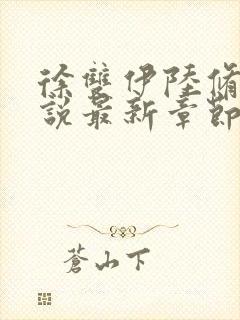 徐雙伊陸脩
說最新章節
蒼山下